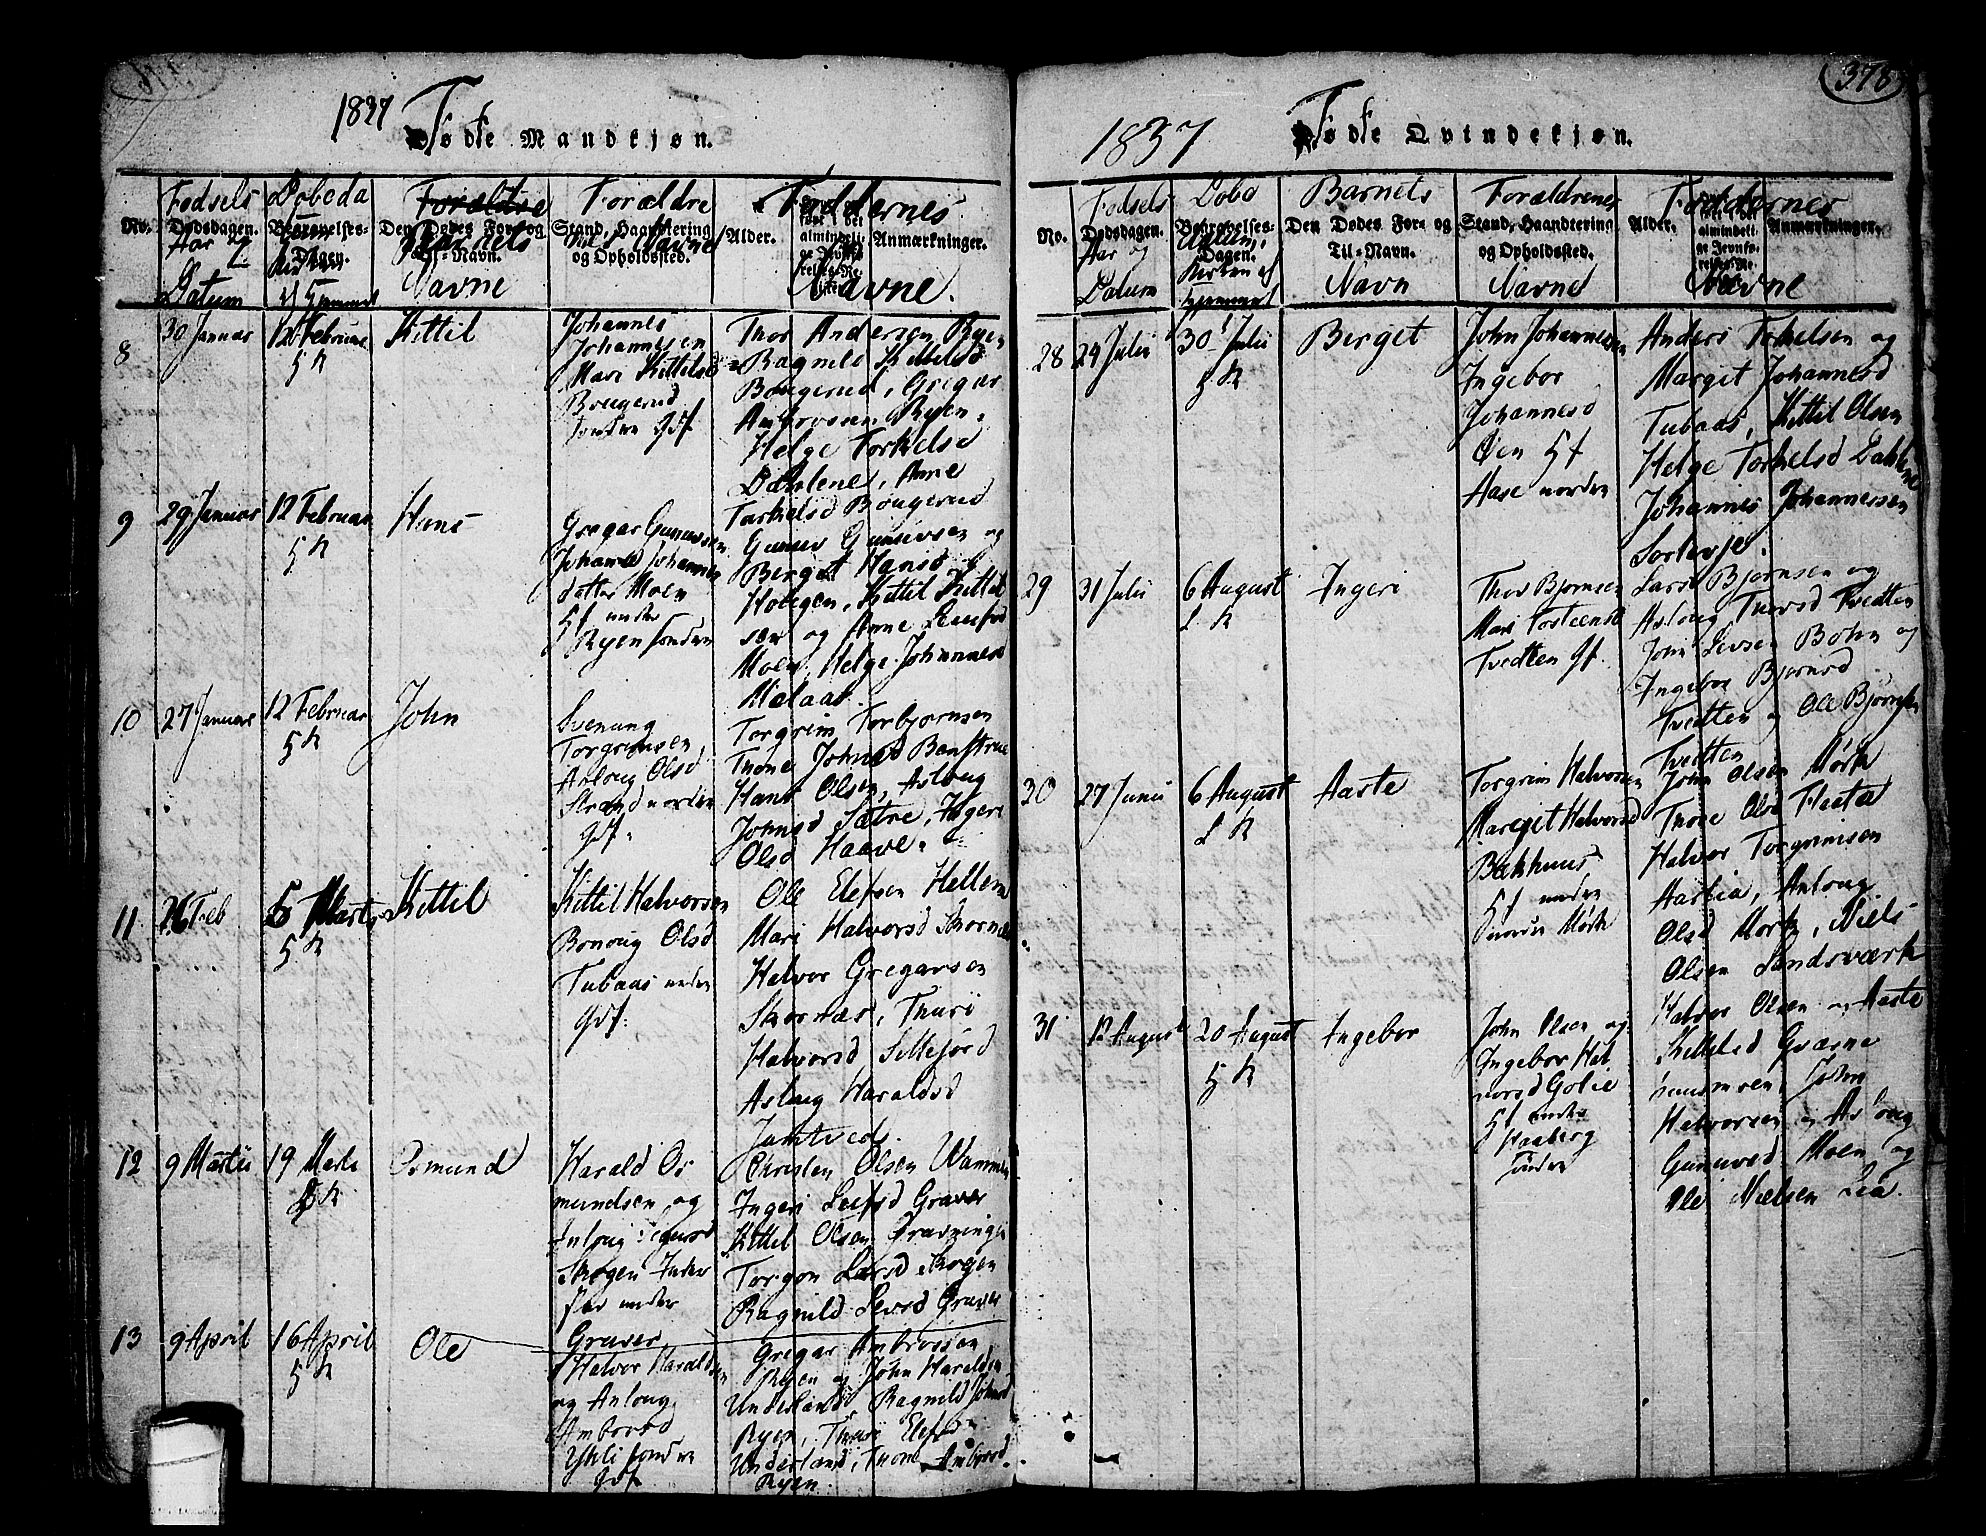 1837 Fødte Mandkjøn.
No.
Fødsels
Dødsdagen.
Aar og
Datum
Døbeda
Begravelses-
Dagen.
Forældre
Den Dødes For- og
Til-Navn.
Barnets
Navne
Forældre
Stand, Haandtering
og Opholdssted.
Navne
Alder.
Faddernes
Anmærkninger.
Navne.
8
30 Januar
12 Februar
5 K
Kittil
Johannes
Johannesen
Mari Kittilsd
Bougerud
Sondre Gdf
Thor Andersen Ryen
Ragnild Kittilsd
Bougerud, Gregar
Ambrosen Ryen
Helge Torkelsd
Dahlene, Anne
Torkelsd Bougerud
9
29 Januar
12 Februar
5 K
Hans
Gregar Gunuvsen
Johanne Johannes
datter Moen
5f under
Ryen sondre
Gunuv Gunuvsen og
Berget Hansd
Hovegen, Kittil Kittil
sen og Anne Leufsd
Moen, Helge Johannesd
Mælaas
10
27 Januar
12 Februar
5 K
John
Svenung
Torgrimsen
Asloug Olsd
Strand norden
Gdf.
Torgrim Torbjornsen
Thone Johnsd Bonstrue
Hans Olsen, Asloug
Johnsd Sætre, Ingeri
Olsd Haave.
11
26 Feb
5 Marts
5 K
Kittil
Kittil Halvorsen
Bonoug Olsd
Tubaas nedre
Gdf.
Ole Elefsen Hellem
Mari Halvorsd Skornæs
Halvor Gregarsen
Skornæs, Thuri
Halvorsd Sillejord
Aslaug Haraldsd
Jamtveds.
12
9 Martii
19 Marts
L K
Osmund
Harald Os
mundsen og
Anloug
Skogen Inder
for under
Graver
Christen Olsen Wammen
Ingeri Leifsd Graver
Kittil Olsen Gravninge
Torgon Larsd Skogen
Ragnild Levsd Graver
13
9 April
16 April
5 K
Ole
Halvor Haraldsen
og Anloug
Ambrosd
Ytli sondre
Gdf
Gregar Ambrosen
Ryen og John Haraldsen
Underland, Ragnild Johnsd
Ryen, Thuri Elefsd
Underland, Thone Ambrosd.
Ryen.
378
1837 Fødte Qvindekjøn.
No.
Fødsels
Dødsdagen.
Aar og
Datum
Dobe
Begravelses-
Dagen.
Barnets
Den Dødes For- og
Til-Navn.
Navn
Forældrenes
Stand, Haandtering
og Opholdssted.
Navne
Alder.
Faddernes
Anmærkninger.
Navne
28
24 Julii
30 Julii
5 K
Berget
John Johannesen
Ingebor
Johannesd
Öen 5f
Aase norden
Anders Torkelsen og
Margit Johannesd
Tubaas, Kittil Olsen
Helge Torkelsd Dahlene
Johannes Johannessen
Sorlevje.
29
31 Julii
6 August
L K
Ingeri
Thov Bjornsen
Mari Torsteensd
Tvedten Gf.
Lars Bjornsen og
Aslong Thovsd Tvedten
John Levsen Bohn og
Ingebor Bjornsd
Tvedten og Ole Bjørnsen
Tvedten
30
27 Junii
6 August
L K
Aaste
Torgrim Halvorsen
Margit Halvorsd
Bakhuus
5f under
Mørk
John Olsen Mørk
Thone Olsd Flesta
Halvor Torgrimsen
Aaslia, Anloug
Olsd Mork, Niels
Olsen Sandsværk
31
12 August
20 August
5 K
Ingebor
John Olsen og
Ingebor Hal
vorsd Golie
5f under
Haaberg
sondre
Halvor Olsen og Aaste
Kittilsd Gvasne
John
Halvorsen og Asloug
Gunuvsd Moen og
Ole Nielsen Lia.